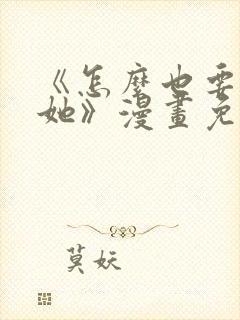 《怎麽也要
她》漫畫免
莫妖